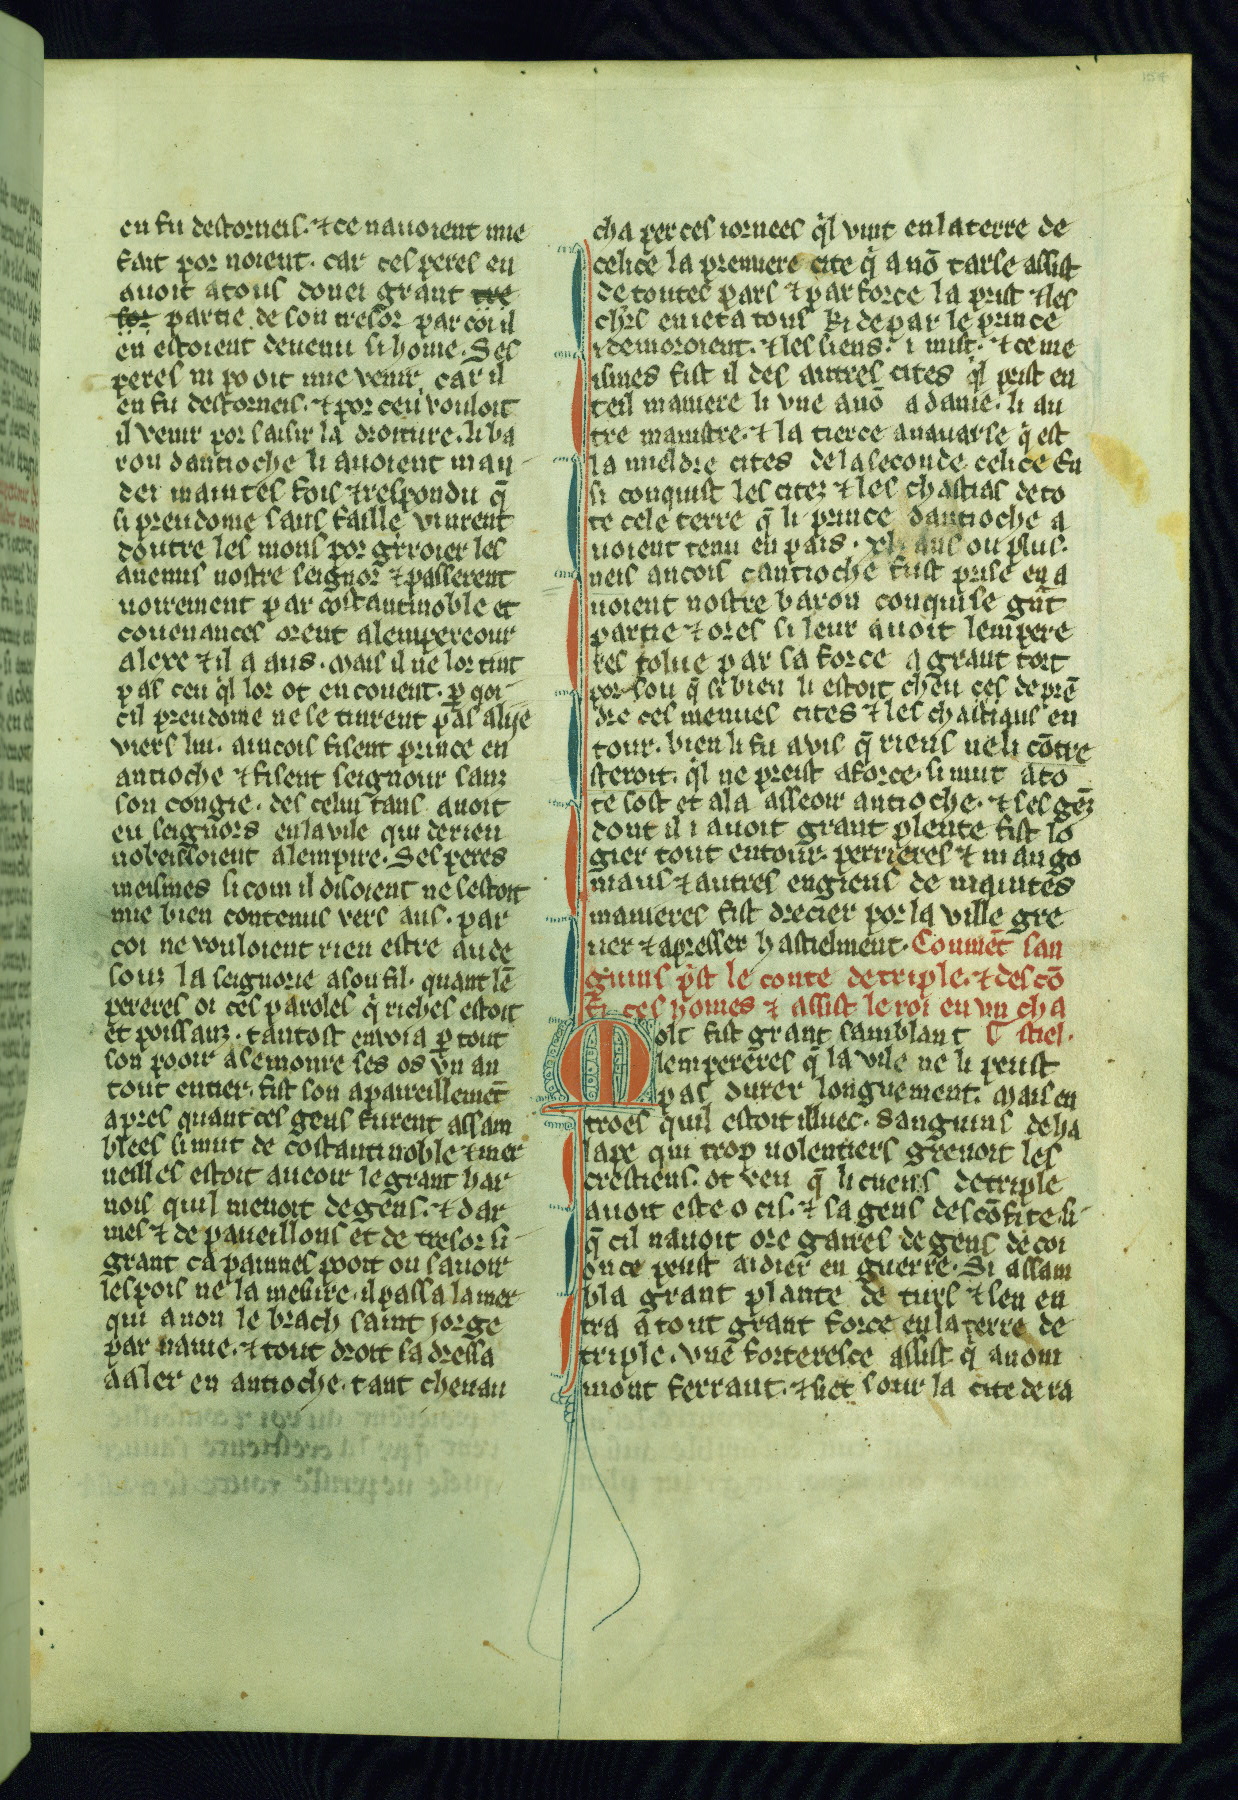 en fu destorneis. ⁊ ce nauoient mie
fait por noient. car ces peres en
auoit a tous donei grant tre
sor partie de son tresor par coi il
en estoient deuenu si home. Ses
peres ni pooit mie venir car il
en fu destorneis. ⁊ por ceu vouloit
il venir por saisir la droiture. li ba
rou dantioche li auoient man
dei maintes fois ⁊ respondu q̄
li preudome sans faille vinrent
doutre les mons por grroier les
anemis nostre seignor ⁊ passerent
uoirement par costantinoble et
couenances orent a lempereour
alexe ⁊ il a aus. Mais il ne lor tint
pas ceu q̇l lor ot en couent. ꝑ qoi
cil preudome ne se tinrent pas a lije
viers lui. aincois fisent prince en
antioche ⁊ fisent seignour sanz
son congie. des celui tans auoit
eu seignors en la vile qui de rien
nobeissoient a lempire. Ses peres
meismes si com il disoient ne sestoit
mie bien contenus vers aus. par
coi ne vouloient rien estre au de
souz la seignorie a son fil. quant lē
pereres oi ces paroles q̇ riches estoit
et poissanz. tantost enuoia ꝑ tout
son pooir a semonre ses os vn an
tout entier. fist son apareillemēt
apres quant ces gens furent assam
blees si mut de costantinoble ⁊ mer
ueilles estoit a ueoir le grant har
nois quil menoit de gens. ⁊ dar
mes ⁊ de paueillons et de tresor si
grant ca painnes pooit ou sauoir
les pois ne la mesure. il passa la mer
qui a non le brach saint jorge
par nauie. ⁊ tout droit sa dressa
a aler en antioche. tant cheuau
cha per ces iornees q̇l vint en la terre de
celice la premiere cite q̇ a nō tarse assist
de toutes pars ⁊ par force la prist ⁊ les
chrs en ieta tous ki de par le prince
i demoroient. ⁊ les siens. i mist. ⁊ ce me
ismes fist il des autres cites q̇l prist en
teil maniere li vne a nō adanie. li au
tre manistre. ⁊ la tierce anauarse q̇ est
la mieldre cites de la seconde celice en
si conquist les citez ⁊ les chastias de to
te cele terre q̄ li prince dantioche a
uoient tenu en pais. xl. ans ou plus.
neis ancois cantioche fust prise en a
uoient nostre baron conquise gn̄t
partie ⁊ ores si leur auoit lempere
res tolue par sa force a grant tort
por sou q̄ se bien li estoit cheu ces de prē
dre ces menues cites ⁊ les chastiaus en
tour. bien li fu avis q̄ riens ne li cōtre
steroit. q̇l ne preist a force. si mut a to
te sost et ala asseoir antioche. ⁊ ses gēz
dont il i auoit grant plente fist lo
gier tout entour. perrieres ⁊ mango
niaus ⁊ autres engiens de maintes
manieres fist drecier por la ville gre
uer ⁊ apresser hastielment. Coumēt san
guins p̄st le conte de triple. ⁊ descō
fi ces homes ⁊ assist le roi en vn cha
stiel.
Molt fist grant samblant
lempereres q̄ la vile ne li peust
pas durer longuement. Mais en
troes quil estoit illuec. Sanguins de ha
lape qui trop uolentiers greuoit les
crestiens. ot veu q̄ li cuens de triple
auoit este ocis. ⁊ sa gens descōfite. si
q̄ cil nauoit ore gaires de gens de coi
on ce peust aidier en guerre. Si assam
bla grant plante de turs ⁊ sen en
tra a tout grant force en la terre de
triple. vne forteresce assist q̇ a nom
mont ferrant. ⁊ siet sour la cite de ra